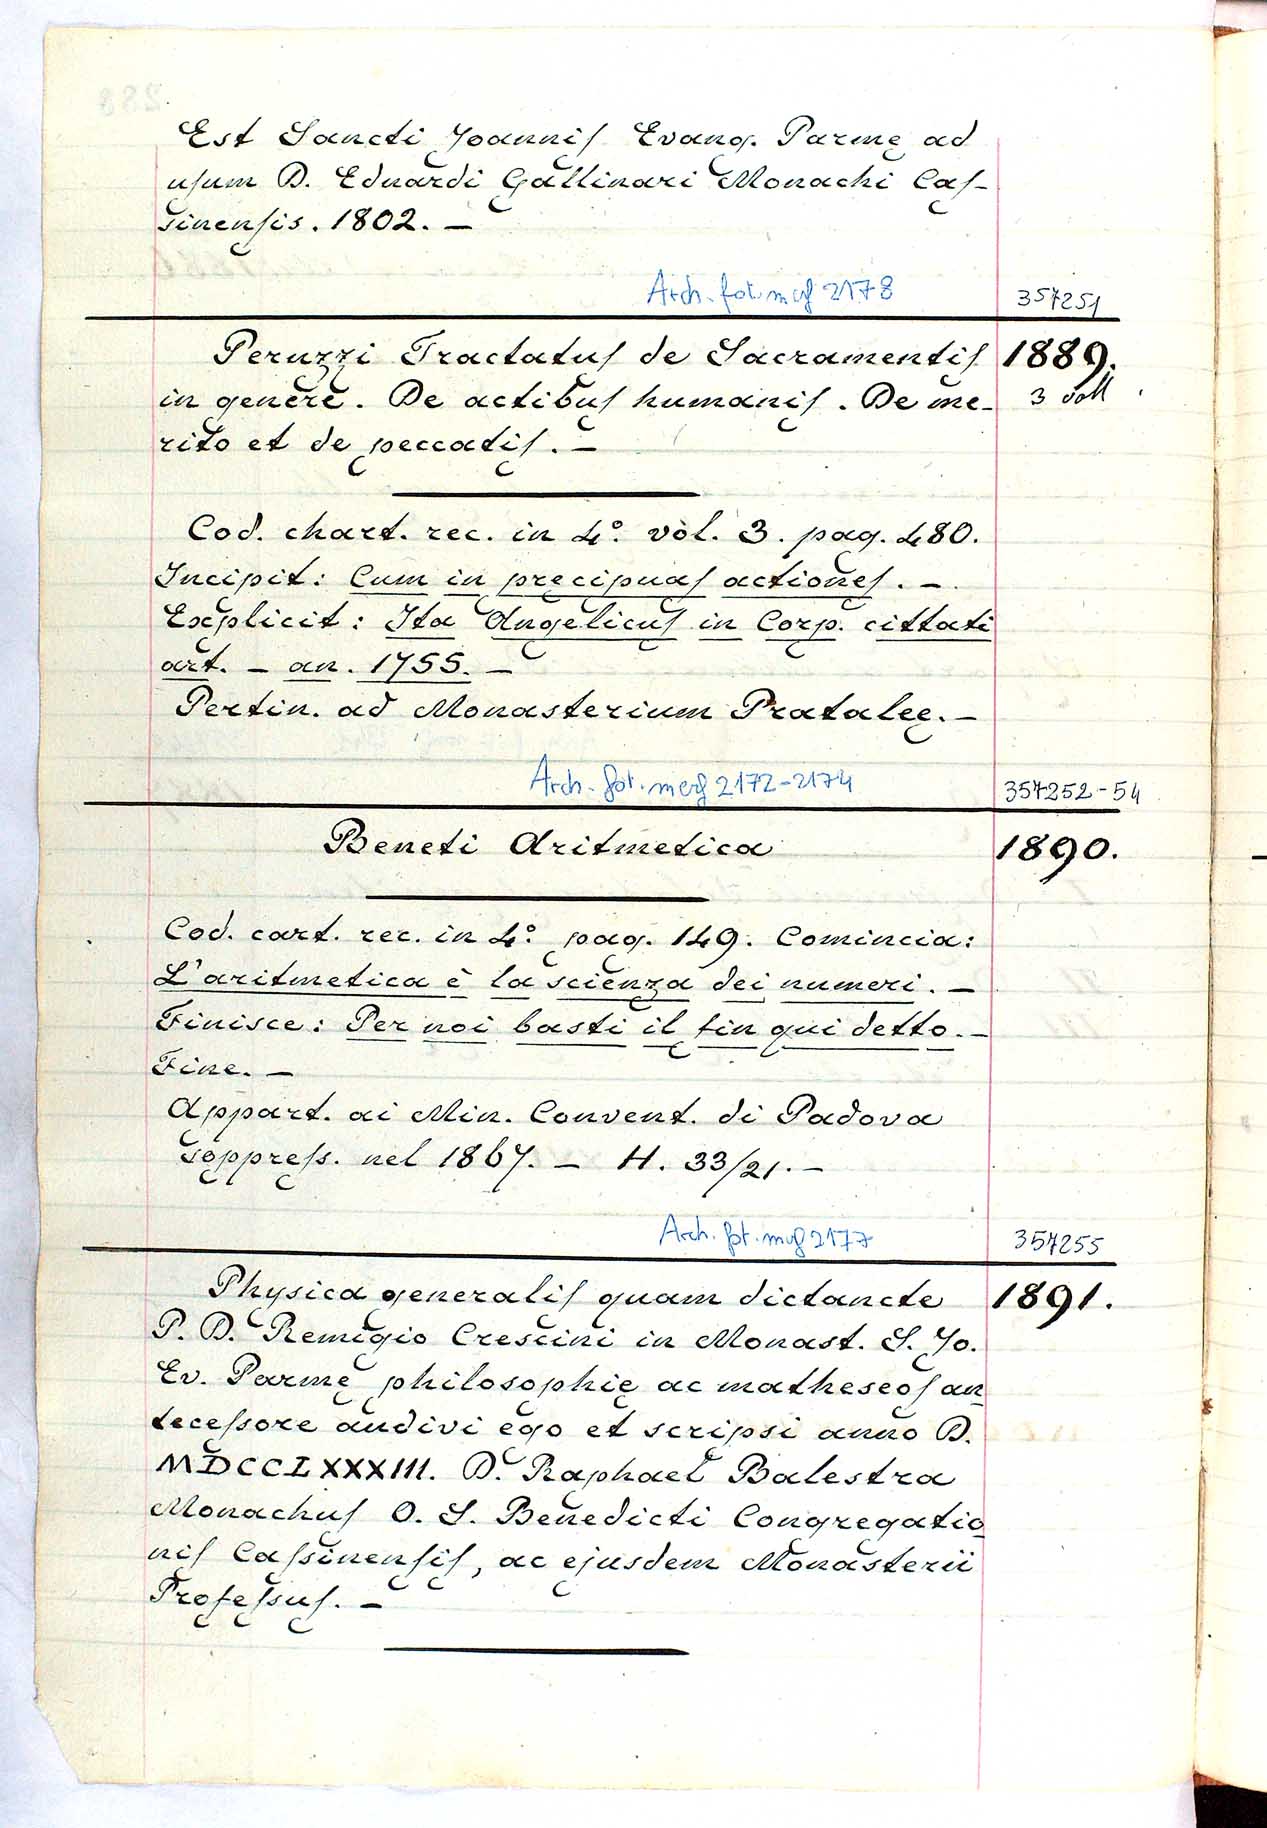 Est Sancti Joannis Evang. Parmę ad
usum D. Eduardi Gallinari Monachi Cas-
sinensis. 1802. —
Arch. fot. neg 2178
357251
Peruzzi Tractatus de Sacramentis
1889.
in genere. De actibus humanis. De me-
3 voll
rito et de peccatis. —
Cod. chart. rec. in 4.° vol. 3. pag. 480.
Incipit: Cum in pręcipuas actiones. —
Explicit: Ita Angelicus in Corp. cittati
art. — an. 1755. —
Pertin. ad Monasterium Pratalęę. —
Arch. fot. neg 2172-2174
357252-54
Beneti Aritmetica
1890.
Cod. cart. rec. in 4.° pag. 149. Comincia:
L'aritmetica è la scienza dei numeri. —
Finisce: Per noi basti il fin qui detto. —
Fine. —
Appart. ai Min. Convent. di Padova
soppress. nel 1867. — H. 33/21. —
Arch. fot. neg 2177
357255
Physica generalis quam dictancte
1891.
P. D. Remigio Crescini in Monast. S. Jo.
Ev. Parmę philosophię ac matheseos an
tecessore audivi ego et scripsi anno D.
MDCCLXXXIII. D. Raphael Balestra
Monachus O. S. Benedicti Congregatio
nis Cassinensis, ac ejusdem Monasterii
Professus. —